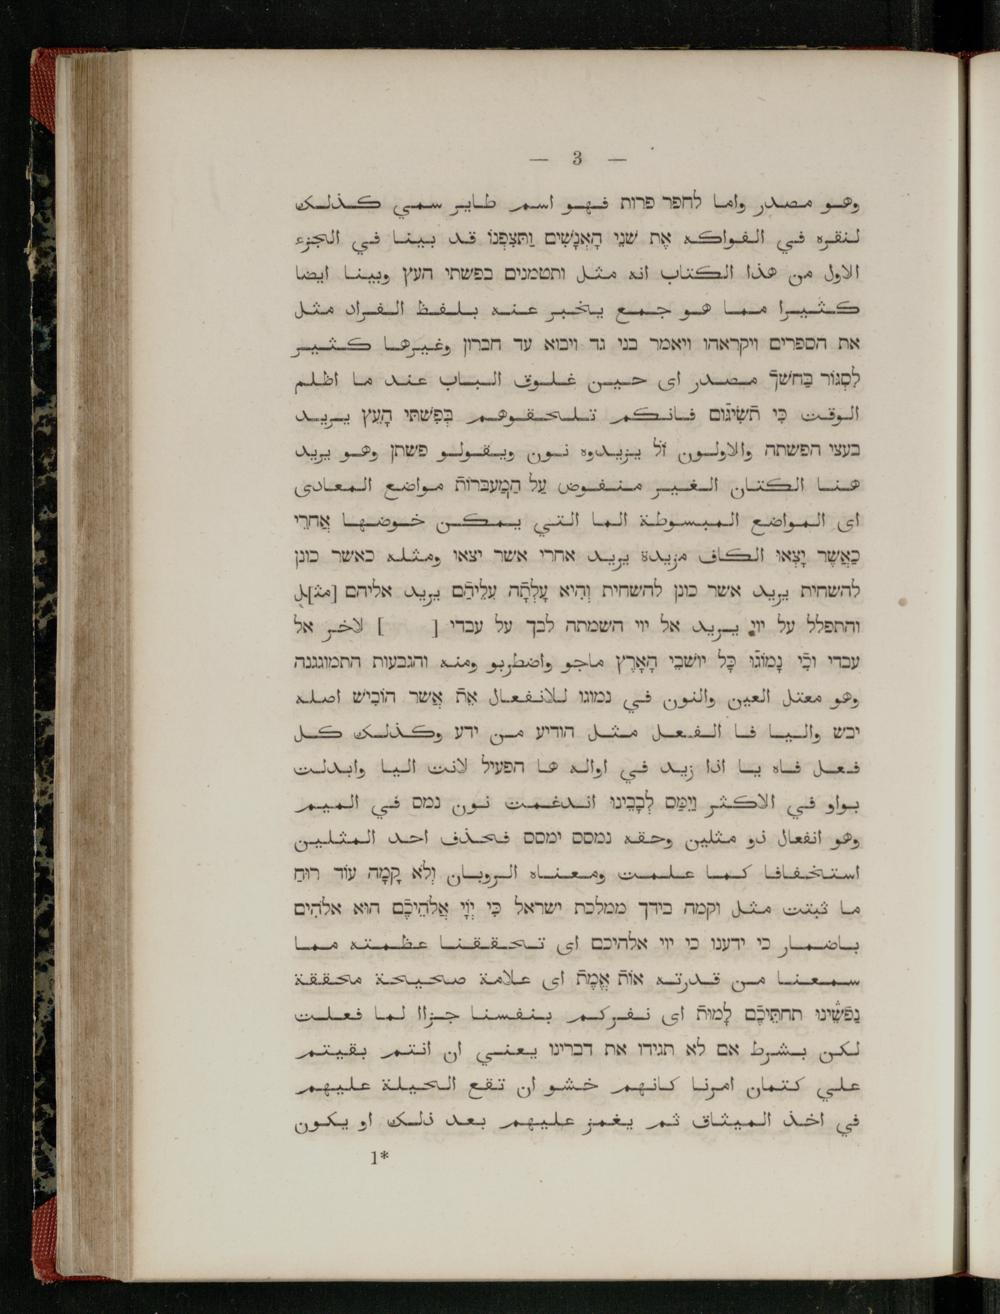 — 3 —
وهو مصدر واما לחפר פרות فهو اسم طاير سمي كذلك
لنقره في الفواكه אֶת שְׁנֵי הָאֲנָשִׁים וַתִּצְפְּנוֹ قد بينا في الجزء
الاول من هذا الكتاب انه مثل ותטמנים בפשתי העץ وبينا ايضا
كثيرا مما هو جمع يخبر عنه بلفظ الفراد مثل
את הספרים ויקראהו ויאמר בני גד ויבוא עד חברון وغيرها كثير
לִסְגּוֹר בַּחֹשֶׁךְ مصدر اى حين غلوق الباب عند ما اظلم
الوقت כִּי תַשִּׂיגוּם فانكم تلحقوهم בְּפִשְׁתֵּי הָעֵץ يريد
בעצי הפשתה والاولون ז״ל يزيدوه نون ويقولو פשתן وهو يريد
هنا الكتان الغير منفوض עַל הַמַּעְבְּרוֹת مواضع المعادى
اى المواضع المبسوطة الما التي يمكن خوضها אַחֲרֵי
כַּאֲשֶׁר יָצְאוּ الكاف مزيدة يريد אחרי אשר יצאו ومثله כאשר כונן
להשחית يريد אשר כונן להשחית וְהִיא עָלְתָה עֲלֵיהֶם يريد אליהם [مث]ل
והתפלל על יוי يريد אל יוי השמתה לבך על עבדי [ ] لاخر אל
עבדי וכִי נָמוֹגוּ כָּל יוֹשְׁבֵי הָאָרֶץ ماجو واضطربو ومنه והגבעות התמוגגנה
وهو معتل العين والنون في נמוגו للانفعال אֵת אֲשֶׁר הוֹבִישׁ اصله
יבש واليا فا الفعل مثل הודיע من ידע وكذلك كل
فعل فاه يا اذا زيد في اواله ها הפעיל لانت اليا وابدلت
بواو في الاكثر וַיִּמַּס לְבָבֵינוּ اندغمت نون נמס في الميم
وهو انفعال ذو مثلين وحقه נמסס ימסס فحذف احد المثلين
استخفافا كما علمت ومعناه الروبان וְלֹא קָמָה עוֹד רוּחַ
ما ثبتت مثل וקמה בידך ממלכת ישראל כִּי יְוָי אֱלֹהֵיכֶם הוא אלהים
باضمار כי ידענו כי יוי אלהיכם اى تحققنا عظمته مما
سمعنا من قدرته אוֹת אֱמֶת اى علامة صحيحة محققة
נַפְשֵׁינוּ תחתֵּיכֶם לָמוּת اى نفركم بنفسنا جزاا لما فعلت
لكن بشرط אם לא תגידו את דברינו يعني ان انتم بقيتم
علي كتمان امرنا كانهم خشو ان تقع الحيلة عليهم
في اخذ الميثاق ثم يغمز عليهم بعد ذلك او يكون
1*